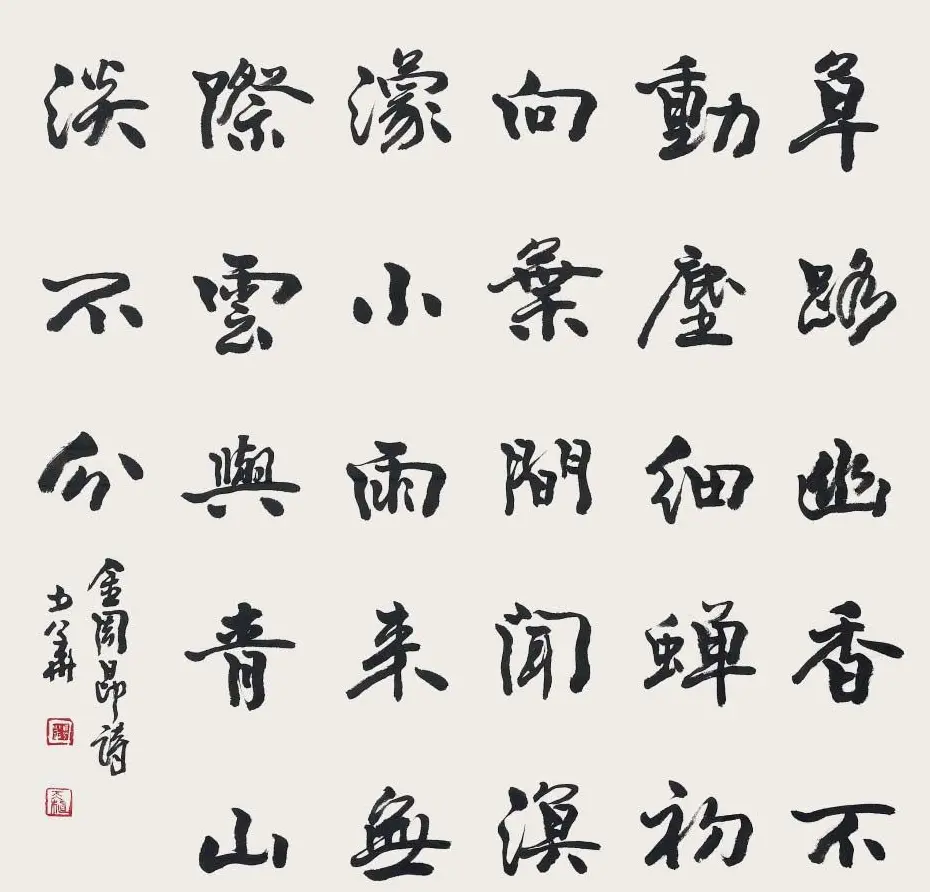 草路幽香不
動塵細蟬初
向葉間聞溟
濛小雨來無
際雲與青山
淡不分
金周昂詩